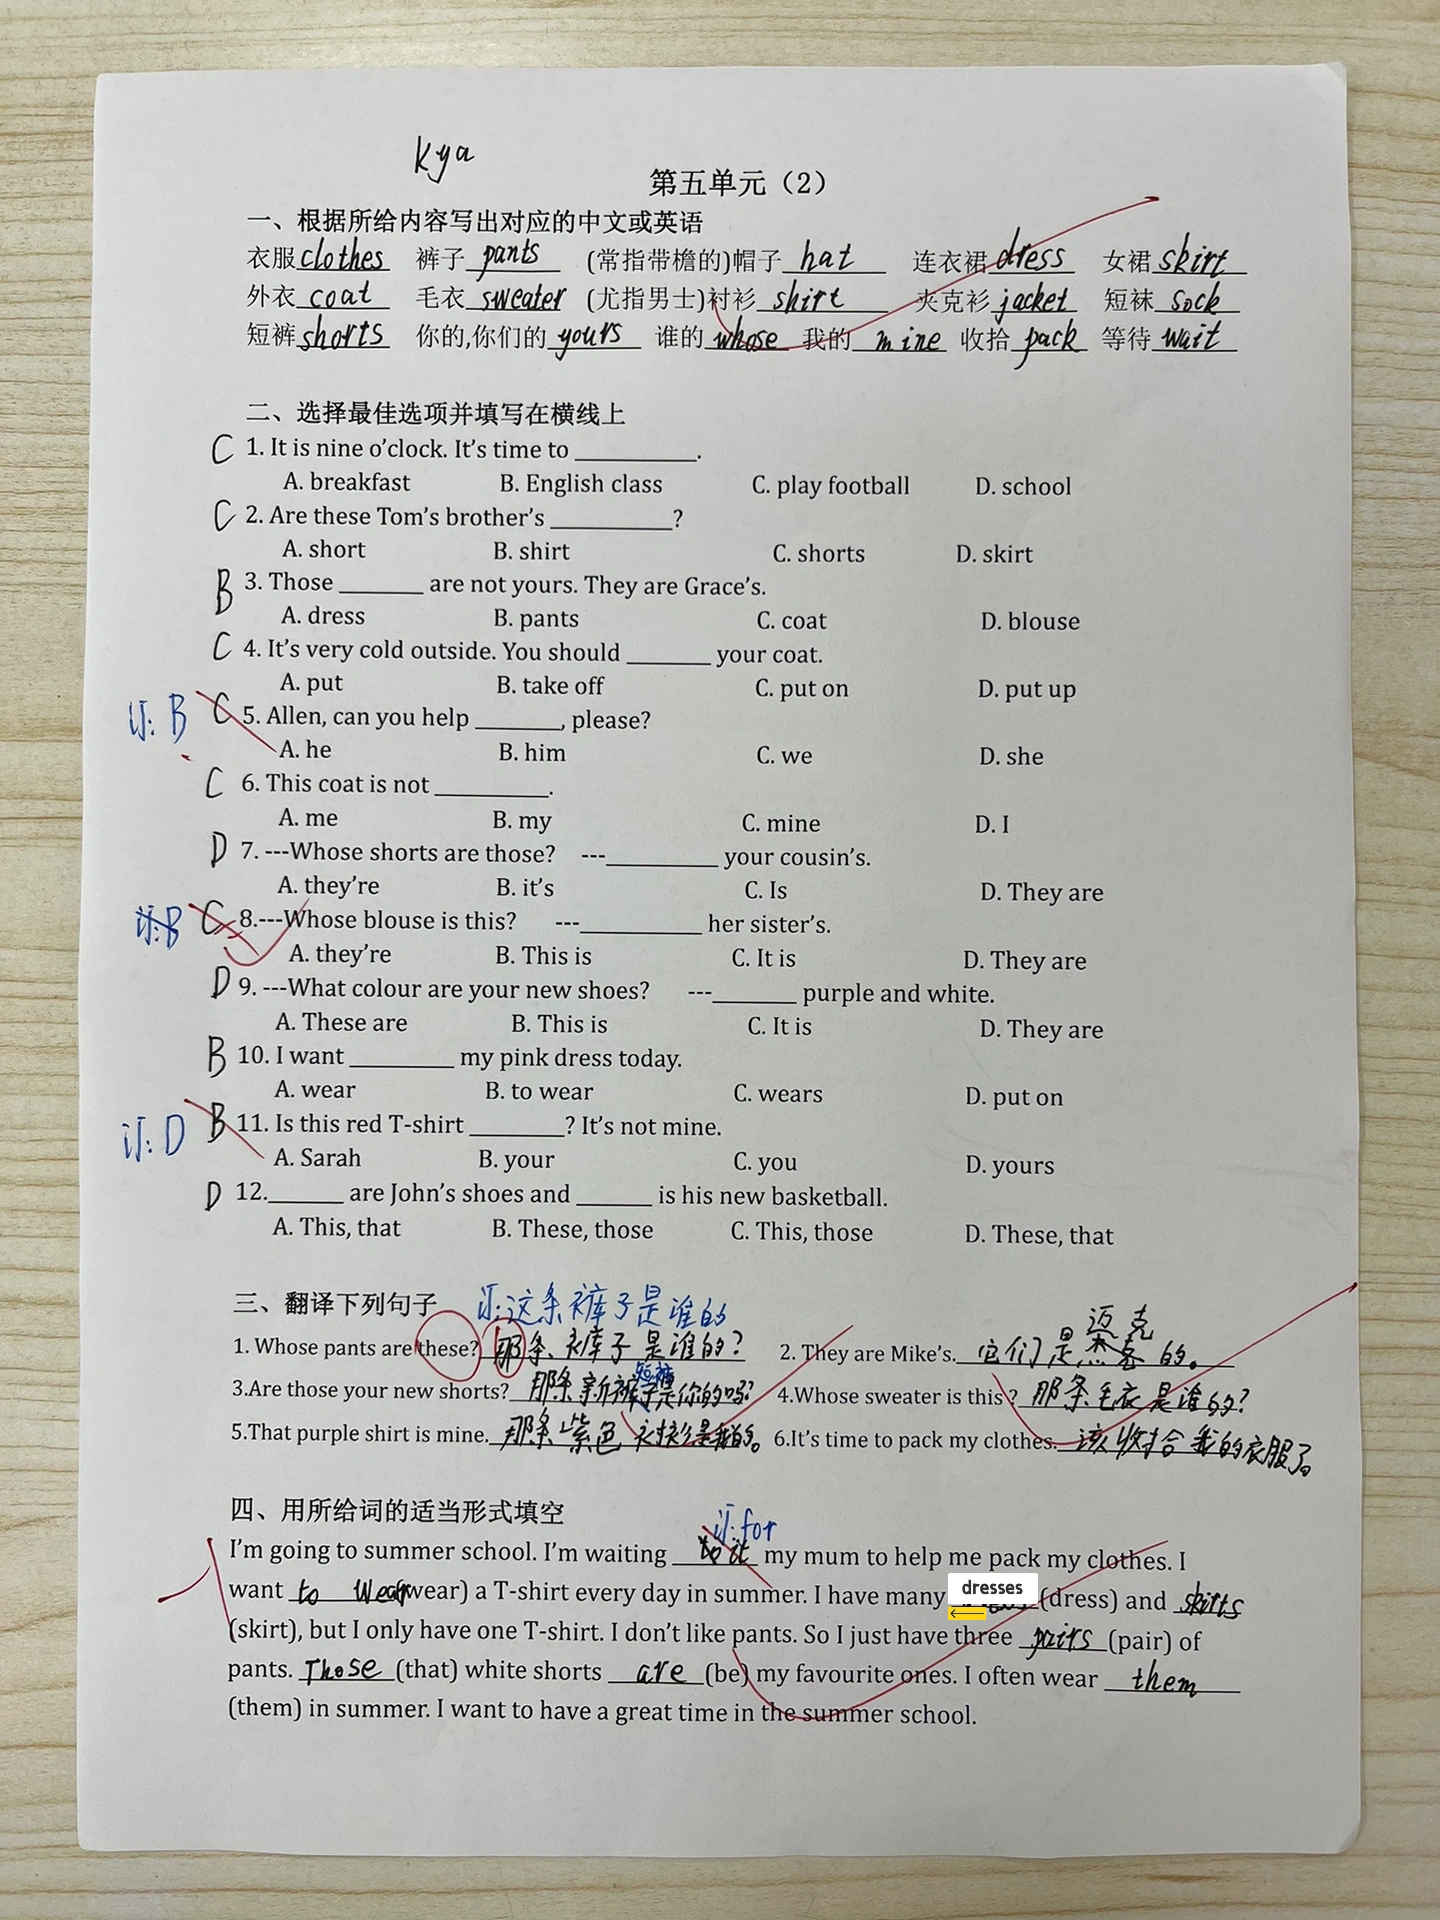 kya
第五单元（2）
一、根据所给内容写出对应的中文或英语
衣服 clothes 裤子 pants (常指带檐的)帽子 hat 连衣裙 dress 女裙 skirt
外衣 coat 毛衣 sweater (尤指男士)衬衫 shirt 夹克衫 jacket 短袜 sock
短裤 shorts 你的,你们的 yours 谁的 whose 我的 mine 收拾 pack 等待 wait
二、选择最佳选项并填写在横线上
C 1. It is nine o'clock. It's time to __________.
A. breakfast B. English class C. play football D. school
C 2. Are these Tom's brother's __________?
A. short B. shirt C. shorts D. skirt
B 3. Those _______ are not yours. They are Grace's.
A. dress B. pants C. coat D. blouse
C 4. It's very cold outside. You should _______ your coat.
A. put B. take off C. put on D. put up
订: B C 5. Allen, can you help _______, please?
A. he B. him C. we D. she
C 6. This coat is not _________.
A. me B. my C. mine D. I
D 7. ---Whose shorts are those? ---_________ your cousin's.
A. they're B. it's C. Is D. They are
订: B C 8.---Whose blouse is this? ---__________ her sister's.
A. they're B. This is C. It is D. They are
D 9. ---What colour are your new shoes? ---_______ purple and white.
A. These are B. This is C. It is D. They are
B 10. I want _________ my pink dress today.
A. wear B. to wear C. wears D. put on
订: D B 11. Is this red T-shirt ________? It's not mine.
A. Sarah B. your C. you D. yours
D 12.______ are John's shoes and ______ is his new basketball.
A. This, that B. These, those C. This, those D. These, that
三、翻译下列句子 订:这条裤子是谁的
1. Whose pants are these? 那条裤子是谁的? 2. They are Mike's. 它们是迈克的。
3.Are those your new shorts? 那条新短裤是你的吗? 4.Whose sweater is this ? 那条毛衣是谁的?
5.That purple shirt is mine. 那条紫色衬衫是我的。 6.It's time to pack my clothes. 该收拾我的衣服了。
四、用所给词的适当形式填空
订:for
I'm going to summer school. I'm waiting to it my mum to help me pack my clothes. I
want to wear (wear) a T-shirt every day in summer. I have many dresses (dress) and skirts
(skirt), but I only have one T-shirt. I don't like pants. So I just have three pairs (pair) of
pants. Those (that) white shorts are (be) my favourite ones. I often wear them
(them) in summer. I want to have a great time in the summer school.